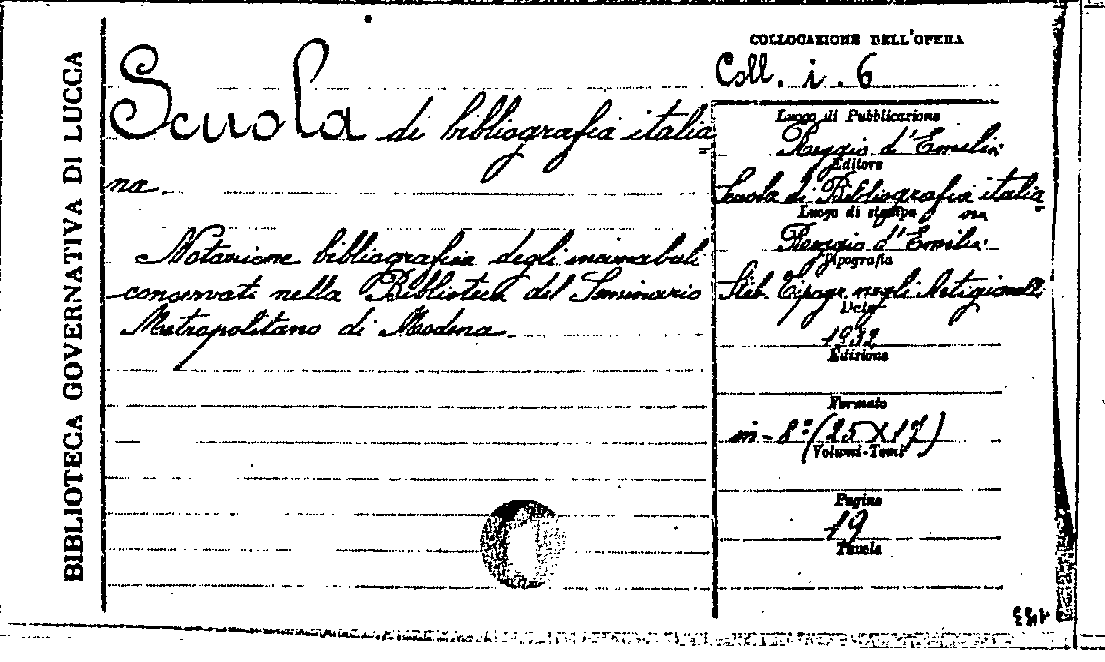 BIBLIOTECA GOVERNATIVA DI LUCCA
Scuola di bibliografia italia=
na.
Notazione bibliografica degli incunaboli
conservati nella Biblioteca del Seminario
Metropolitano di Modena
COLLOCAZIONE DELL'OPERA
Coll. i. 6
Luogo di Pubblicazione
Reggio d'Emilia
Editore
Scuola di Bibliografia italia=
na
Luogo di stampa
Reggio d'Emilia
Tipografia
Stib. Tipogr. negli Artigianelli
Data
1932
Edizione
Formato
in-8º (25X17)
Volumi-Tomi
Pagine
19
Tavole